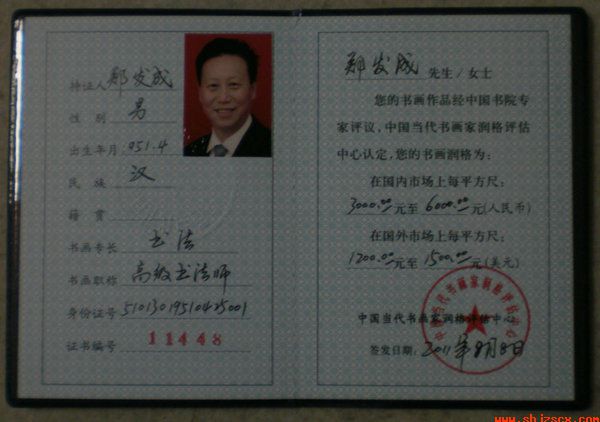 持证人 郑发成
性别 男
出生年月 951.4
民族 汉
籍贯 //
书画专长 书法
书画职称 高级书法师
身份证号 51013019510425001
证书编号 11448
郑发成 先生/女士
您的书画作品经中国书院专
家评议,中国当代书画家润格评估
中心认定,您的书画润格为:
在国内市场上每平方尺:
3000.00元至6000.00元(人民币)
在国外市场上每平方尺:
1200.00元至1500.00元(美元)
中国当代书画家润格评估中心
中国当代书画家润格评估中心
签发日期: 2011年8月8日
www.shjzscx.com